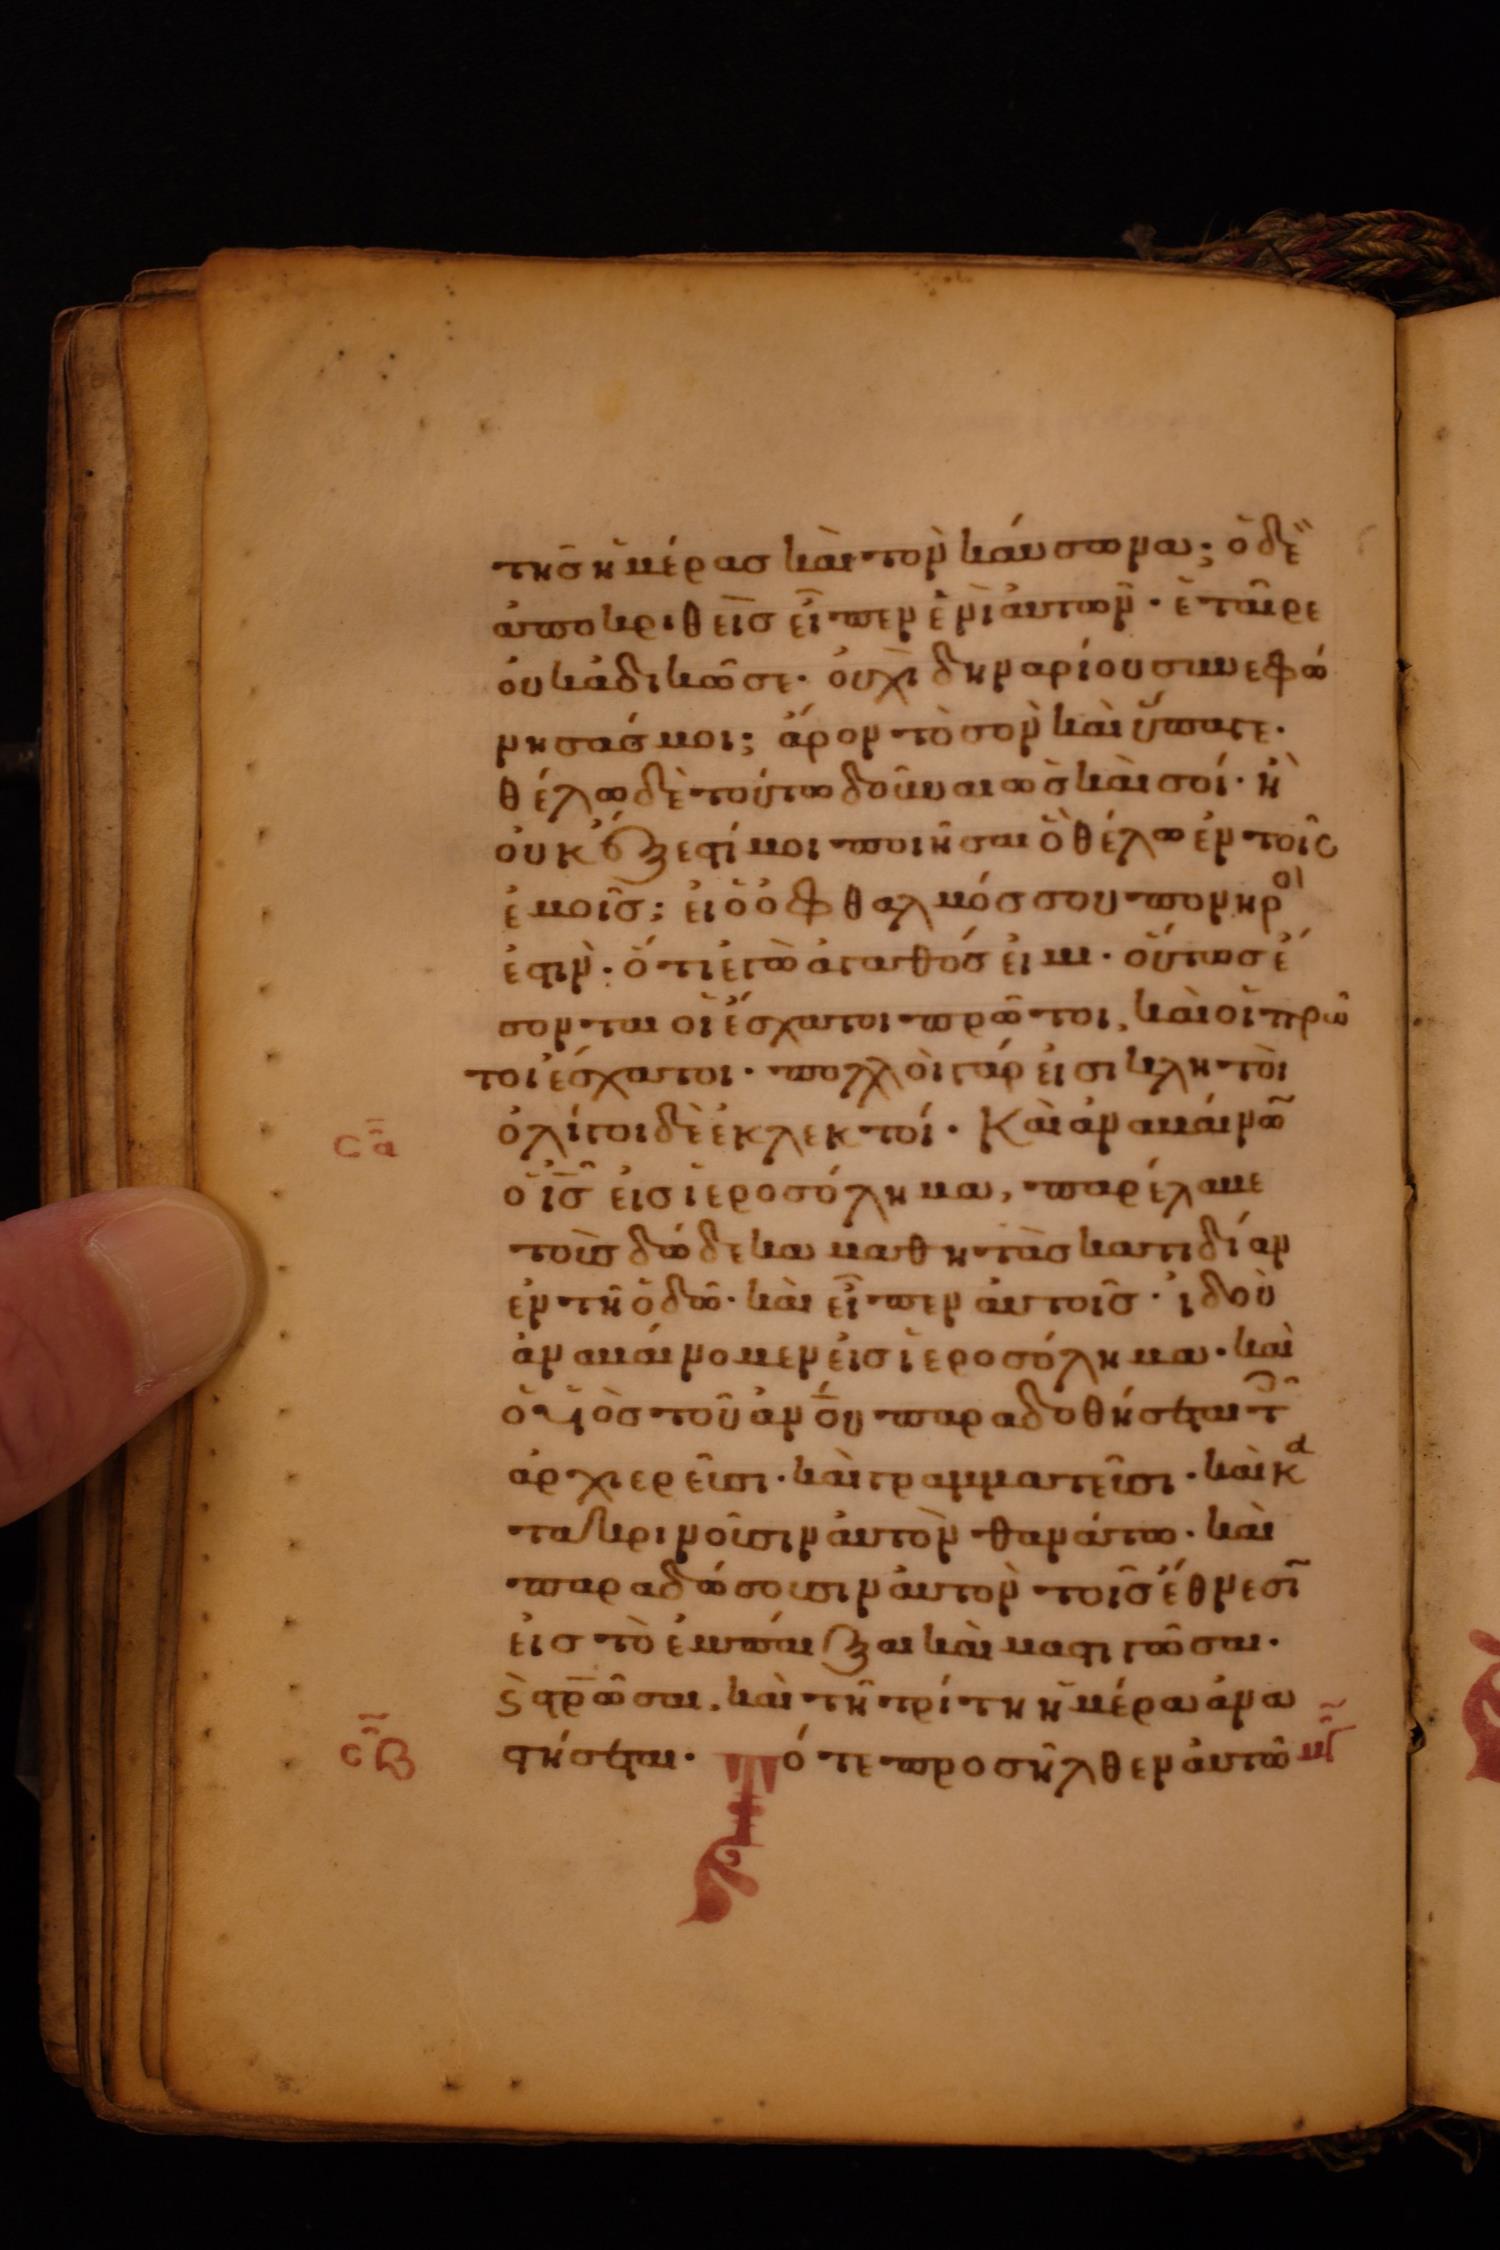 τῆς ἡμέρας καὶ τὸν καύσωνα; ὁ δὲ
ἀποκριθεὶς εἶπεν ἑνὶ αὐτῶν· ἑταῖρε
οὐκ ἀδικῶ σε· οὐχὶ δηναρίου συνεφώ
νησάς μοι; ἆρον τὸ σὸν καὶ ὕπαγε·
θέλω δὲ τούτω δοῦναι ὡς καὶ σοί· ἢ
οὐκ ἔξεστί μοι ποιῆσαι ὃ θέλω ἐν τοῖς
ἐμοῖς; εἰ ὁ ὀφθαλμός σου πονηρ
ἐστὶν· ὅτι ἐγὼ ἀγαθός εἰμι· οὕτως ἔ
σονται οἱ ἔσχατοι πρῶτοι, καὶ οἱ πρῶ
τοι ἔσχατοι· πολλοὶ γάρ εἰσι κλητοὶ
σ̅α̅ ὀλίγοι δὲ ἐκλεκτοί· Καὶ ἀναβαίνω̃
ὁ ἰ̅ς̅ εἰς ἱεροσόλυμα, παρέλαβε
τοὺς δώδεκα μαθητὰς κατιδίαν
ἐν τῆ ὁδῶ· καὶ εἶπεν αὐτοῖς· ἰδοὺ
ἀναβαίνομεν εἰς ἱεροσόλυμα· καὶ
ὁ υἱὸς τοῦ ἀν̅ο̅υ παραδοθήσεται τ
ἀρχιερεῦσι· καὶ γραμματεῦσι· καὶ κα
τακρινοῦσιν αὐτὸν θανάτω· καὶ
παραδώσουσιν αὐτὸν τοῖς ἔθνεσῖ
εἰς τὸ ἐμπαῖξαι καὶ μαστιγῶσαι·
ϛ̀ στ̅ρῶσαι, καὶ τῆ τρίτη ἡμέρα ἀνα
σ̅β̅ στήσεται· Τότε προσῆλθεν αὐτῶ